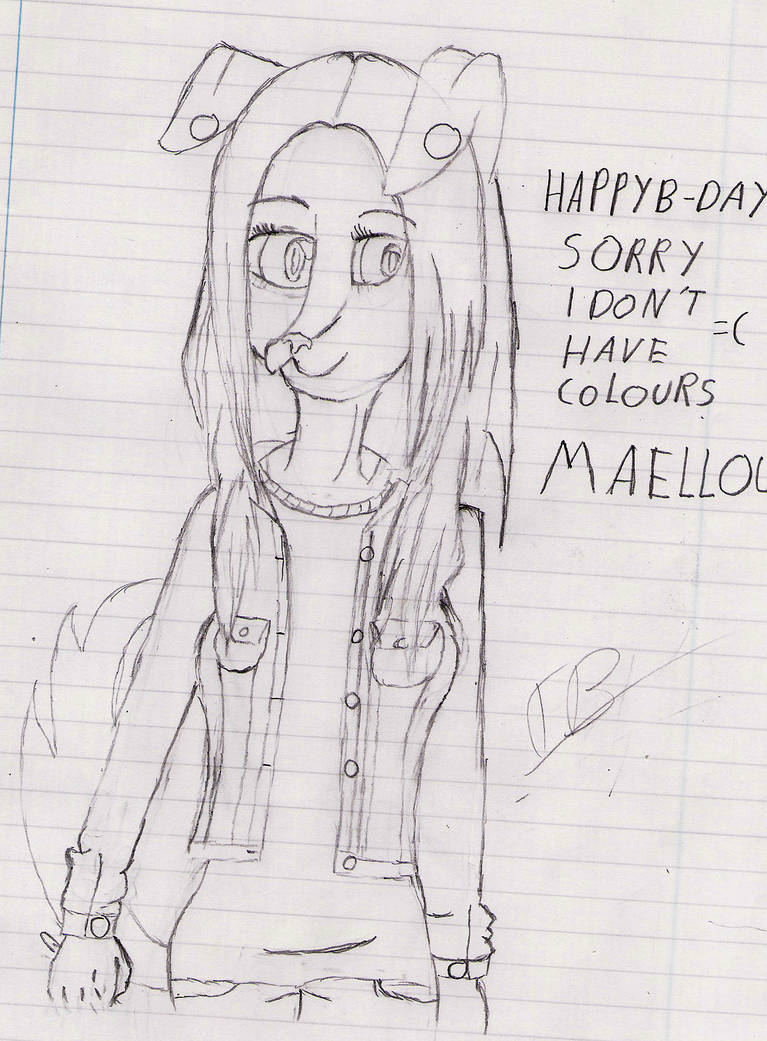 HAPPY B-DAY
SORRY
I DON'T
HAVE =(
COLOURS
MAELLOU